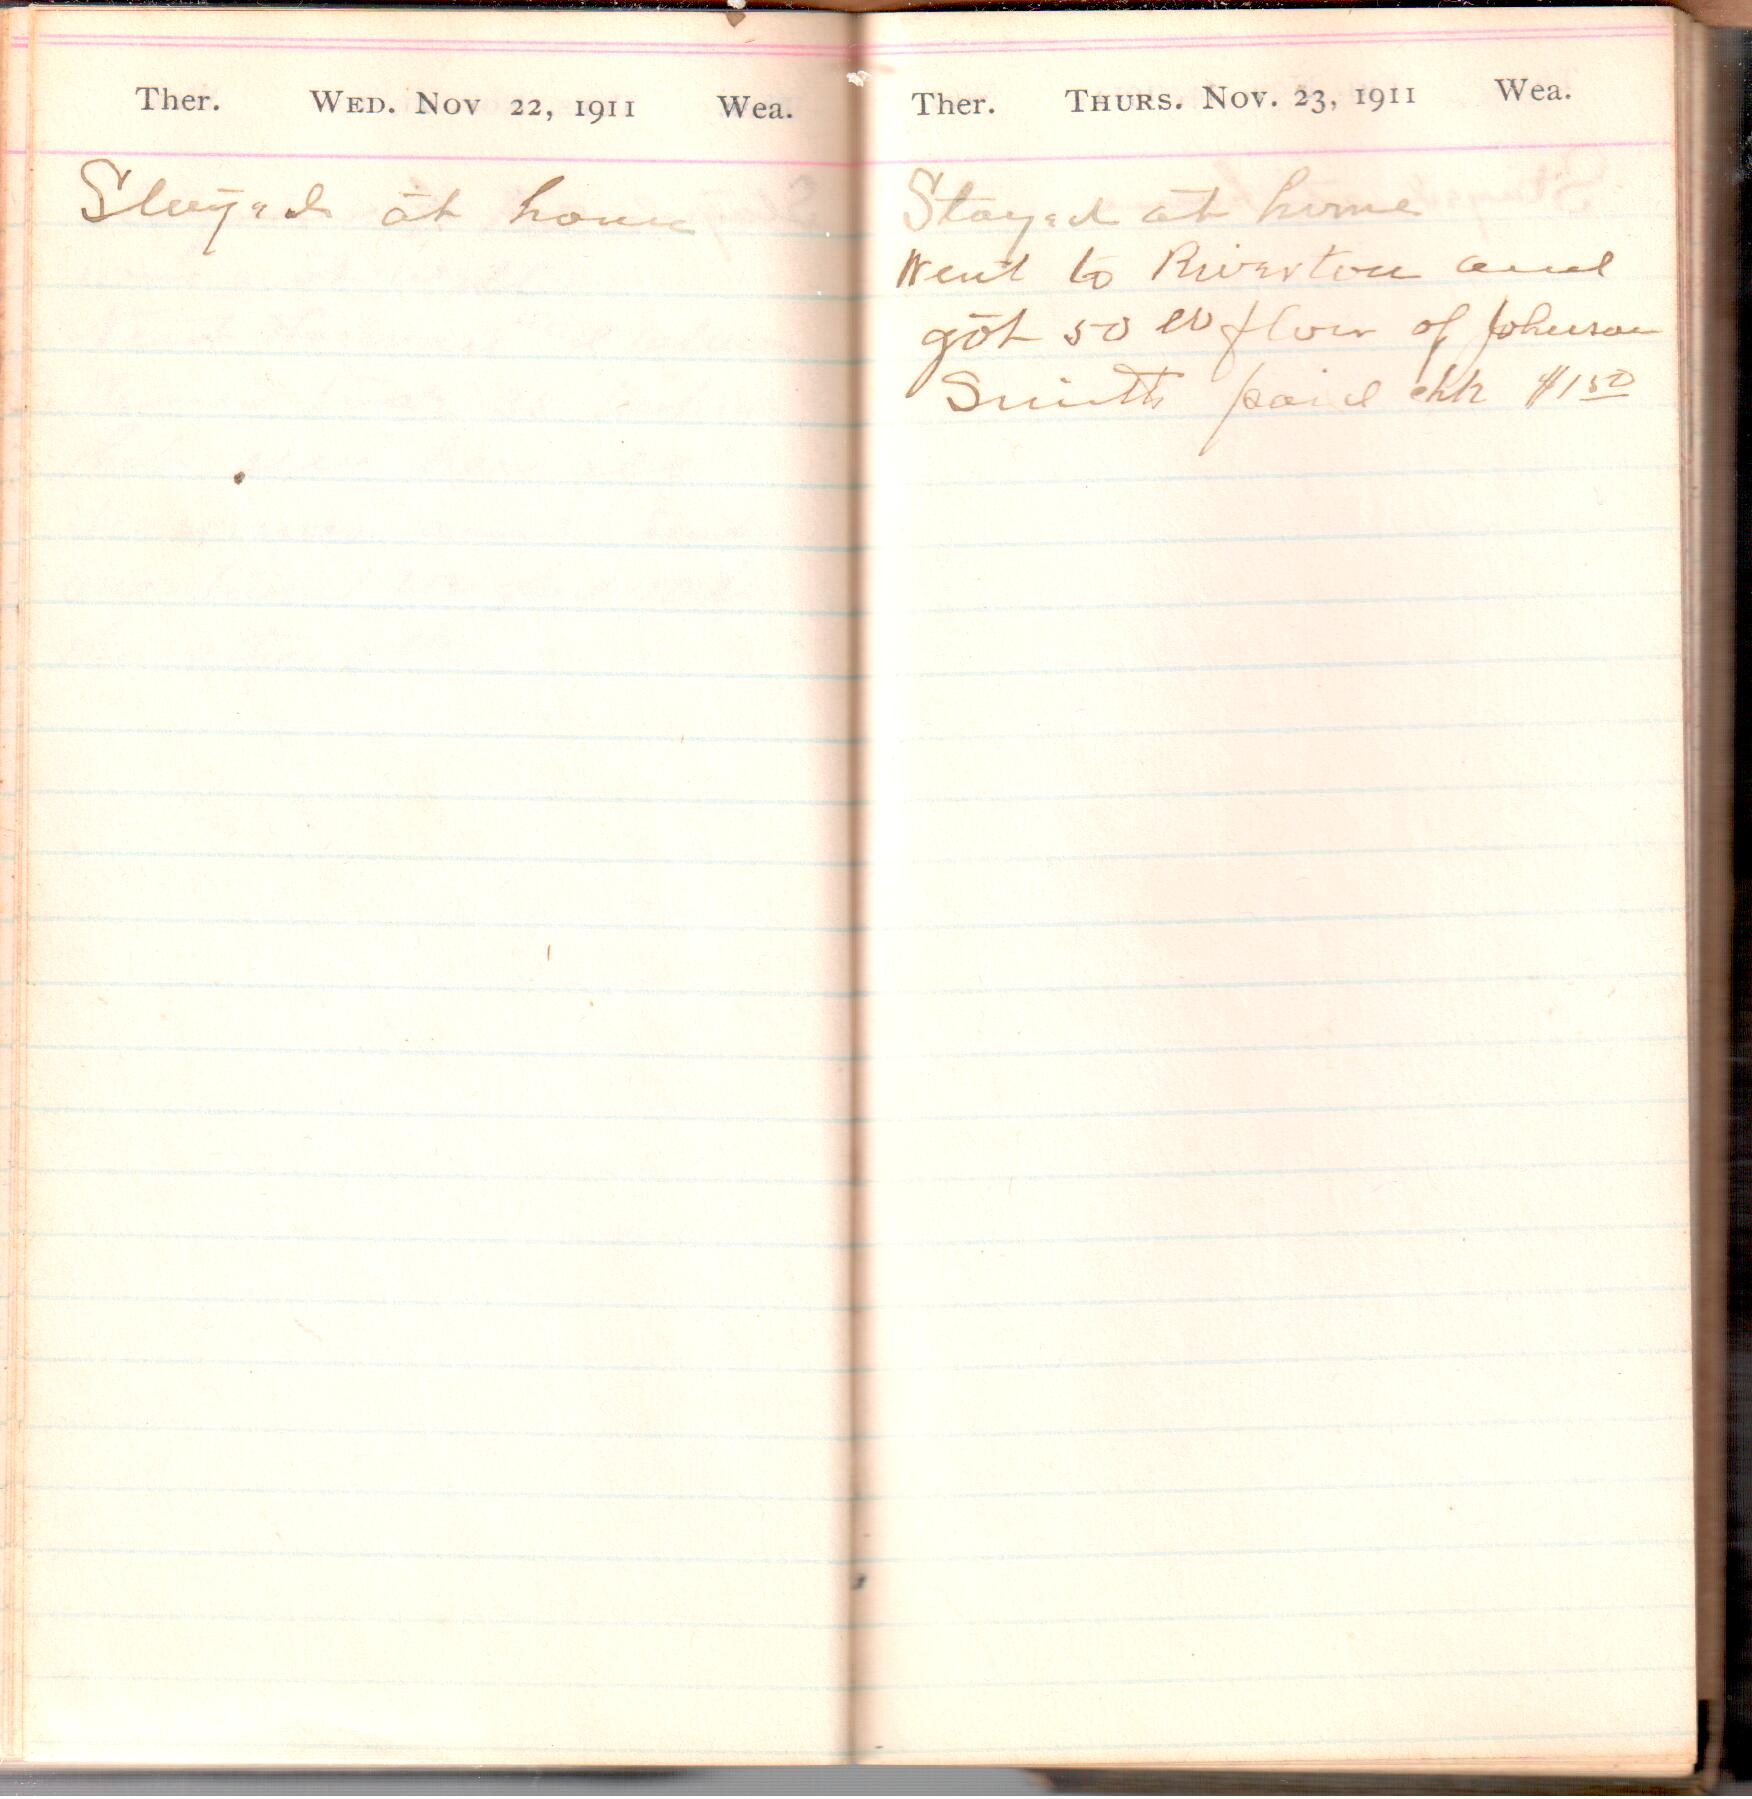 Ther. WED. NOV 22, 1911 Wea.
Stayed at home
Ther. THURS. NOV. 23, 1911 Wea.
Stayed at home
Went to Riverton and
got 50 lb flour of Johnson
Smith paid chk $1.50